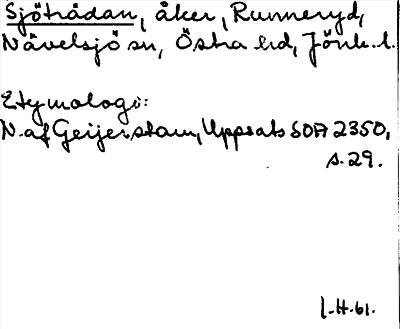 Sjötrådan, åker, Runneryd,
Nävelsjö sn, Östra hd, Jönk. l.
Etymologi:
N. af Geijerstam, Uppsats SOA 2350,
s. 29.
I.H. 61.